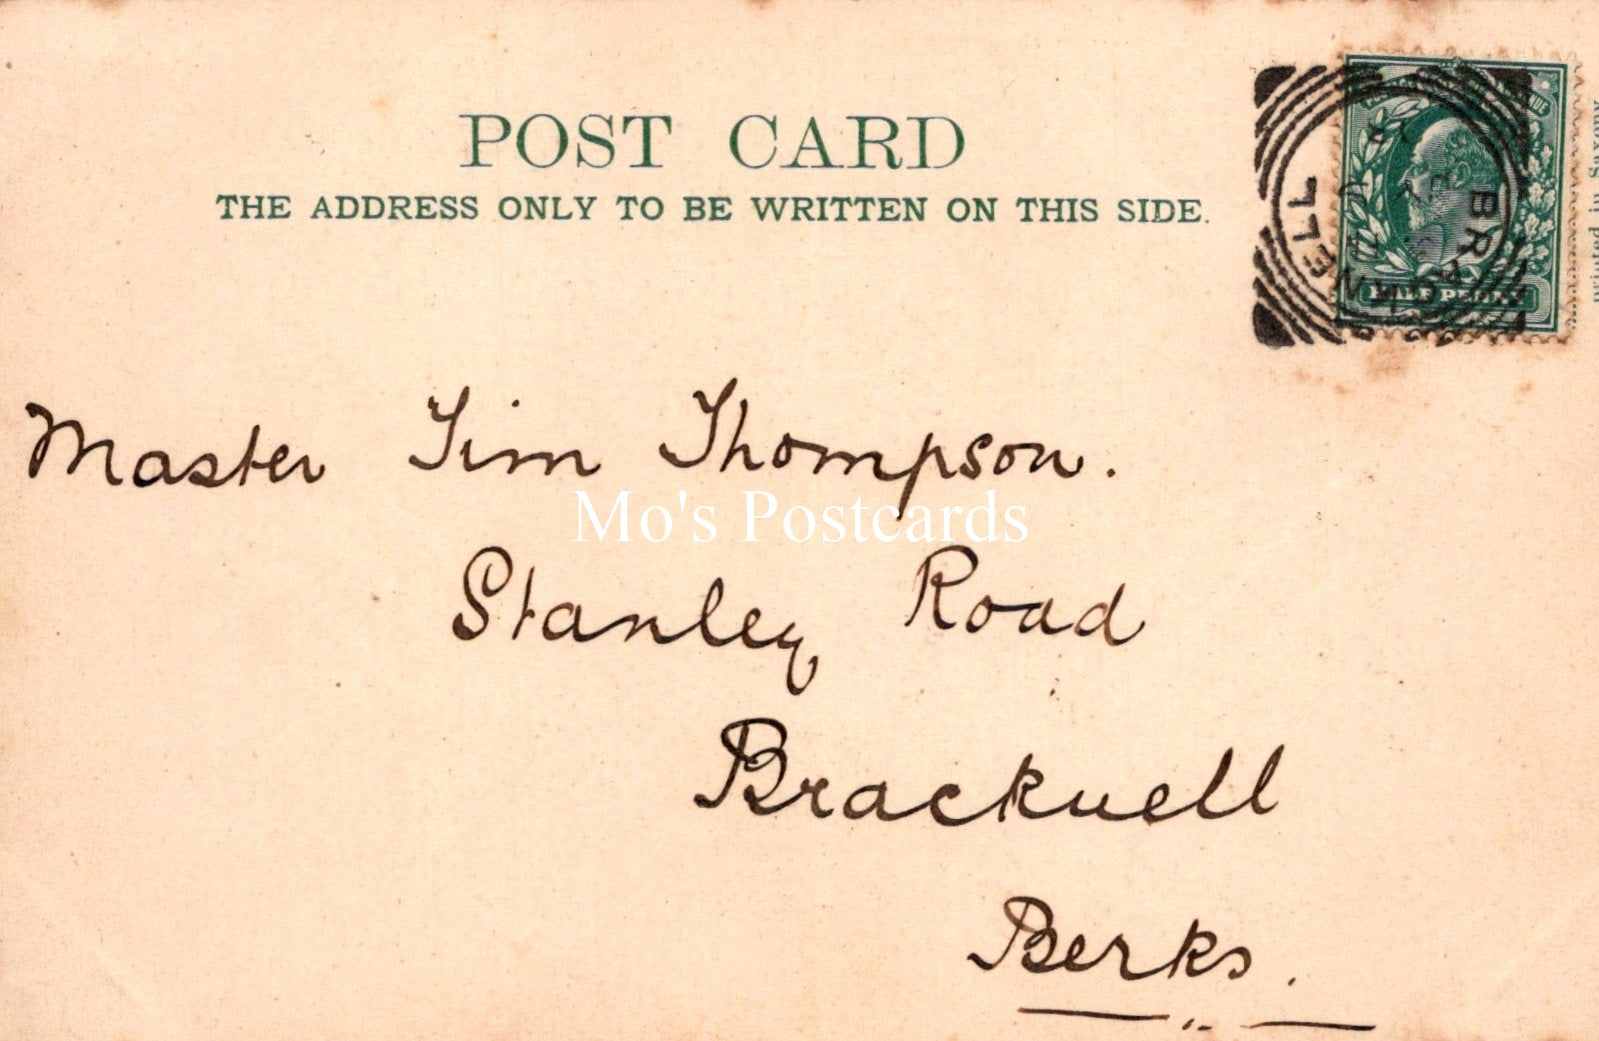 POST CARD
THE ADDRESS ONLY TO BE WRITTEN ON THIS SIDE.
BRACKNELL
HALF PENNY
printed in Saxony
Master Jim Thompson.
Mo's Postcards
Stanley Road
Bracknell
Berks.